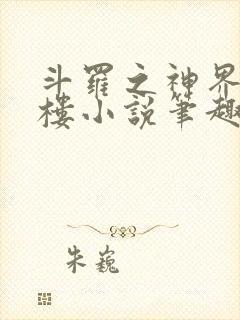 斗羅之神界
樓小說筆趣
朱巍